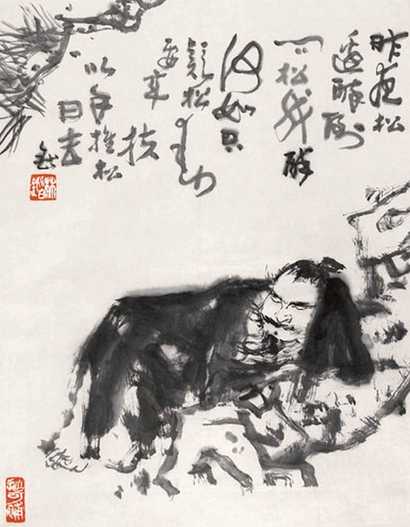 昨夜松
邊醉倒
问松我醉
何如只
疑松动
要来扶
以手推松
曰去